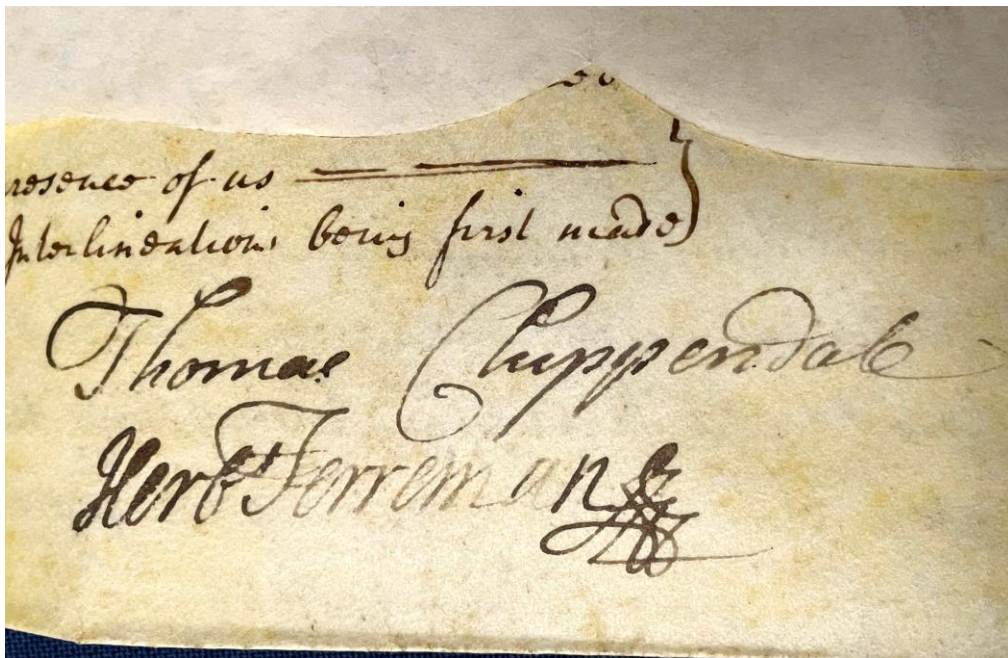 resence of us
Interlineations being first made
Thomas Chippendale
Herbt Ferreman